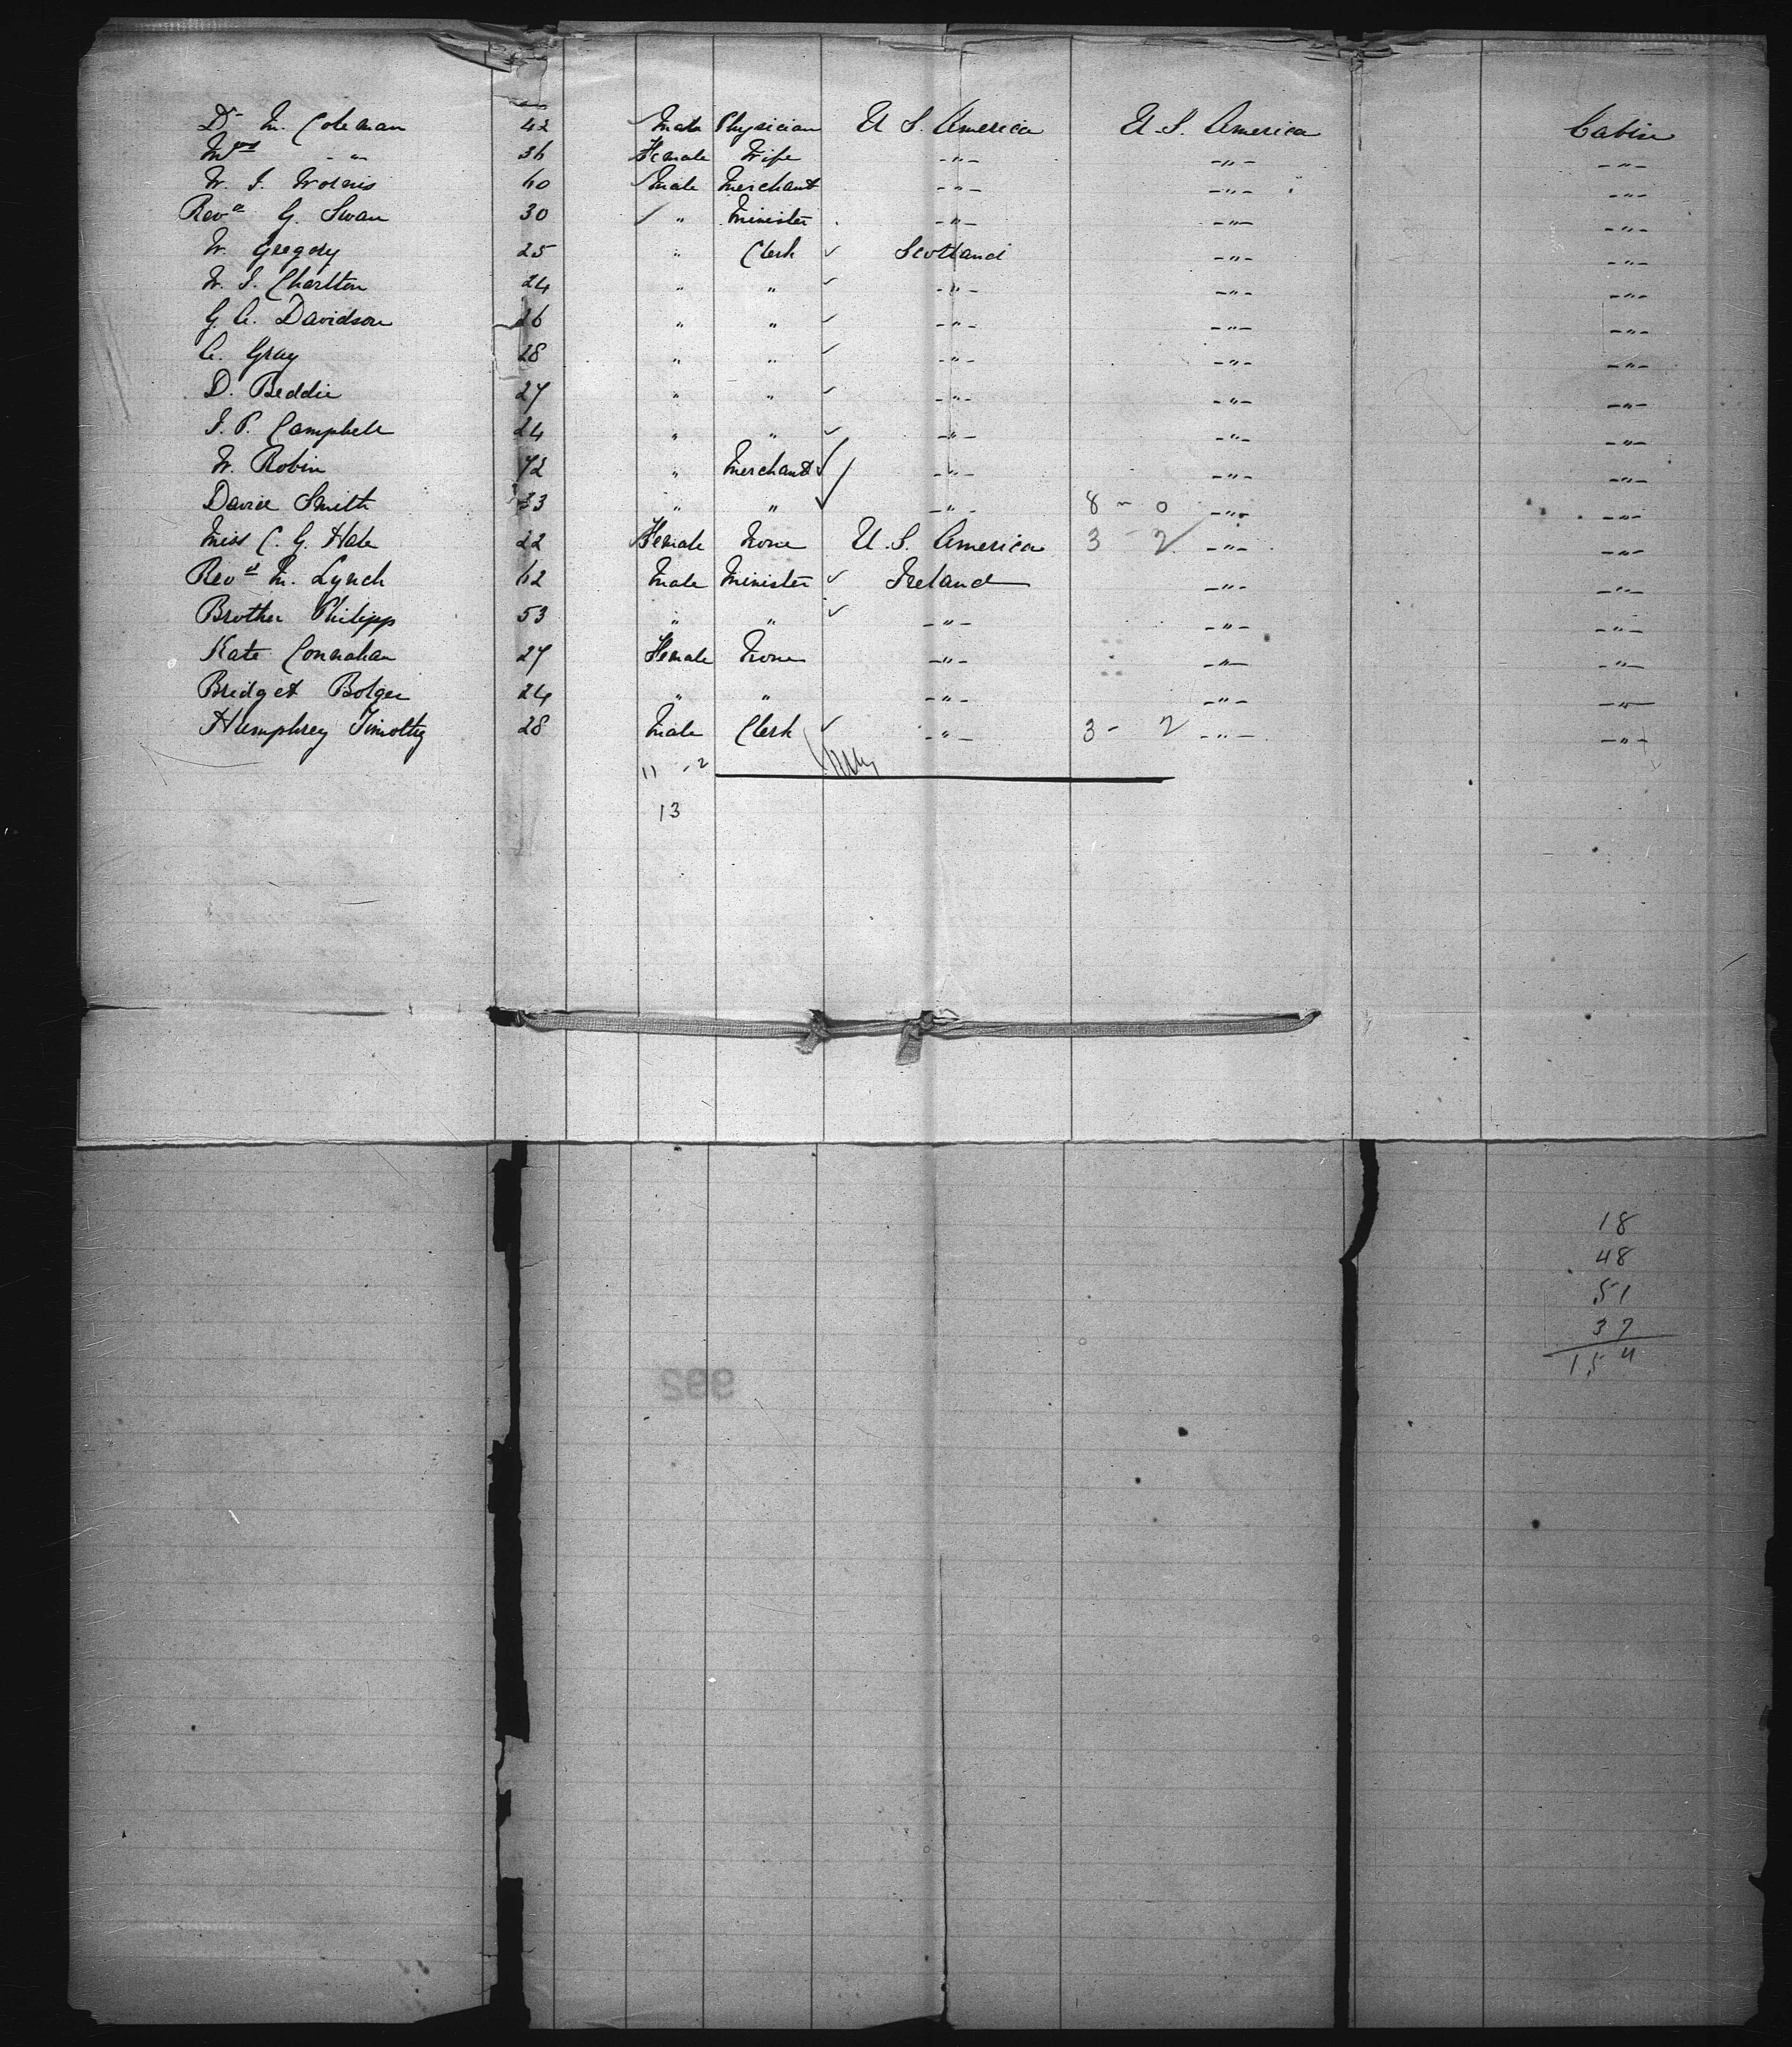 Dr M. Coleman 42 Male Physician U S. America U. S. America Cabin
Mrs -"- 36 Female Wife -"- -"- -"-
W. J. 60 Male Merchant -"- -"- -"-
Revd G. Swan 30 " Minister -"- -"- -"-
W. Gregory 25 " Clerk Scotland -"- -"-
W. J. Charlton 24 " " -"- -"- -"-
G. A. Davidson 26 " " -"- -"- -"-
A. Gray 28 " " -"- -"- -"-
D. Beddie 27 " " -"- -"- -"-
J. P. Campbell 24 " " -"- -"- -"-
W. Robin 72 " Merchant -"- -"- -"-
David Smith 33 " " -"- 8 - 0 -"- -"-
Miss C. G. Hale 22 Female None U. S. America 3 - 2 -"- -"-
Revd M. Lynch 62 Male Minister Ireland -"- -"-
Brother Philipp 53 " " -"- -"- -"-
Kate Connahan 27 Female None -"- -"- -"-
Bridget Bolger 24 " " -"- -"- -"-
Humphrey Timothy 28 Male Clerk -"- 3 - 2 -"- -"-
11 - 2
13
18
48
51
37
154
992